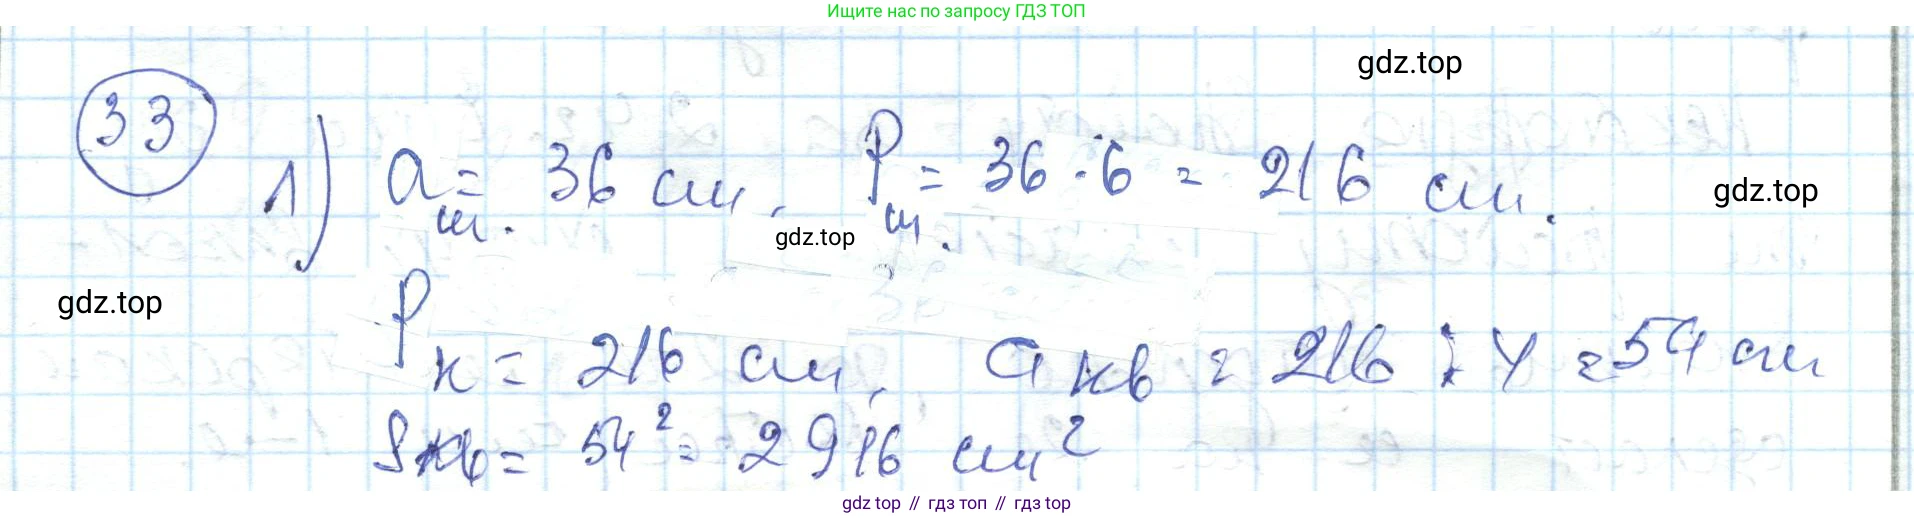 Ищите нас по запросу ГДЗ ТОП
gdz.top
33
1) a ш. = 36 см, P ш. = 36 · 6 = 216 см.
gdz.top
gdz.top
gdz.top
P к = 216 см, a кв = 216 : 4 = 54 см
S кв = 54² = 2916 см²
gdz.top // гдз топ // гдз top